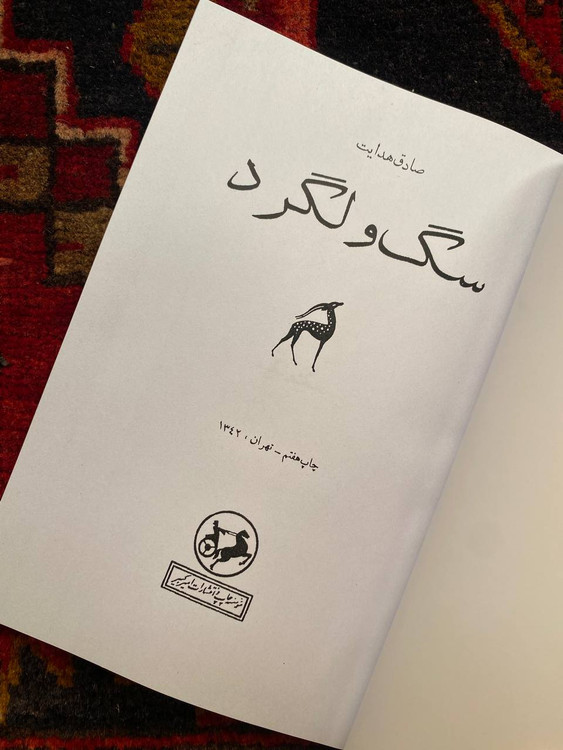 صادق هدایت
سگ ولگرد
چاپ هفتم - تهران، ۱۳۴۲
انتشارات امیرکبیر